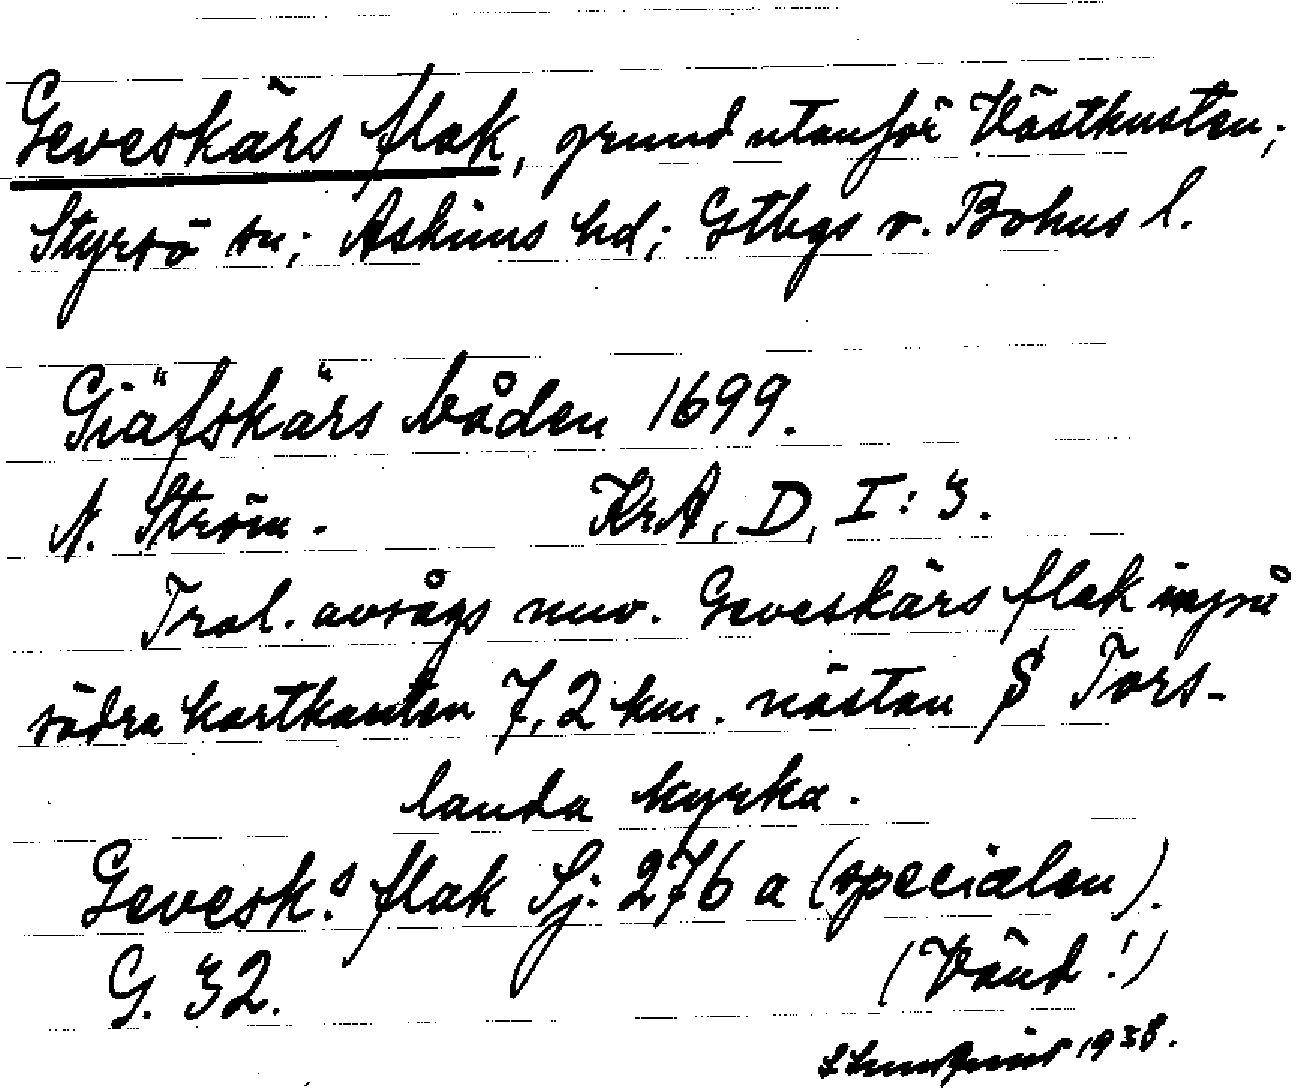 Geveskärs flak, grund utanför Västkusten;
Styrsö sn; Askims hd; Gtbgs o. Bohus l.
Giäfskärs båden 1699.
N. Ström. KrA, D, I: 3.
Trol. avsågs nuv. Geveskärs flak inpå
södra kartkanten 7,2 km. nästan S Tors-
landa kyrka.
Gevesk:s flak Sj: 276 a (specialen).
G. 32. (Vänd!)
1938.